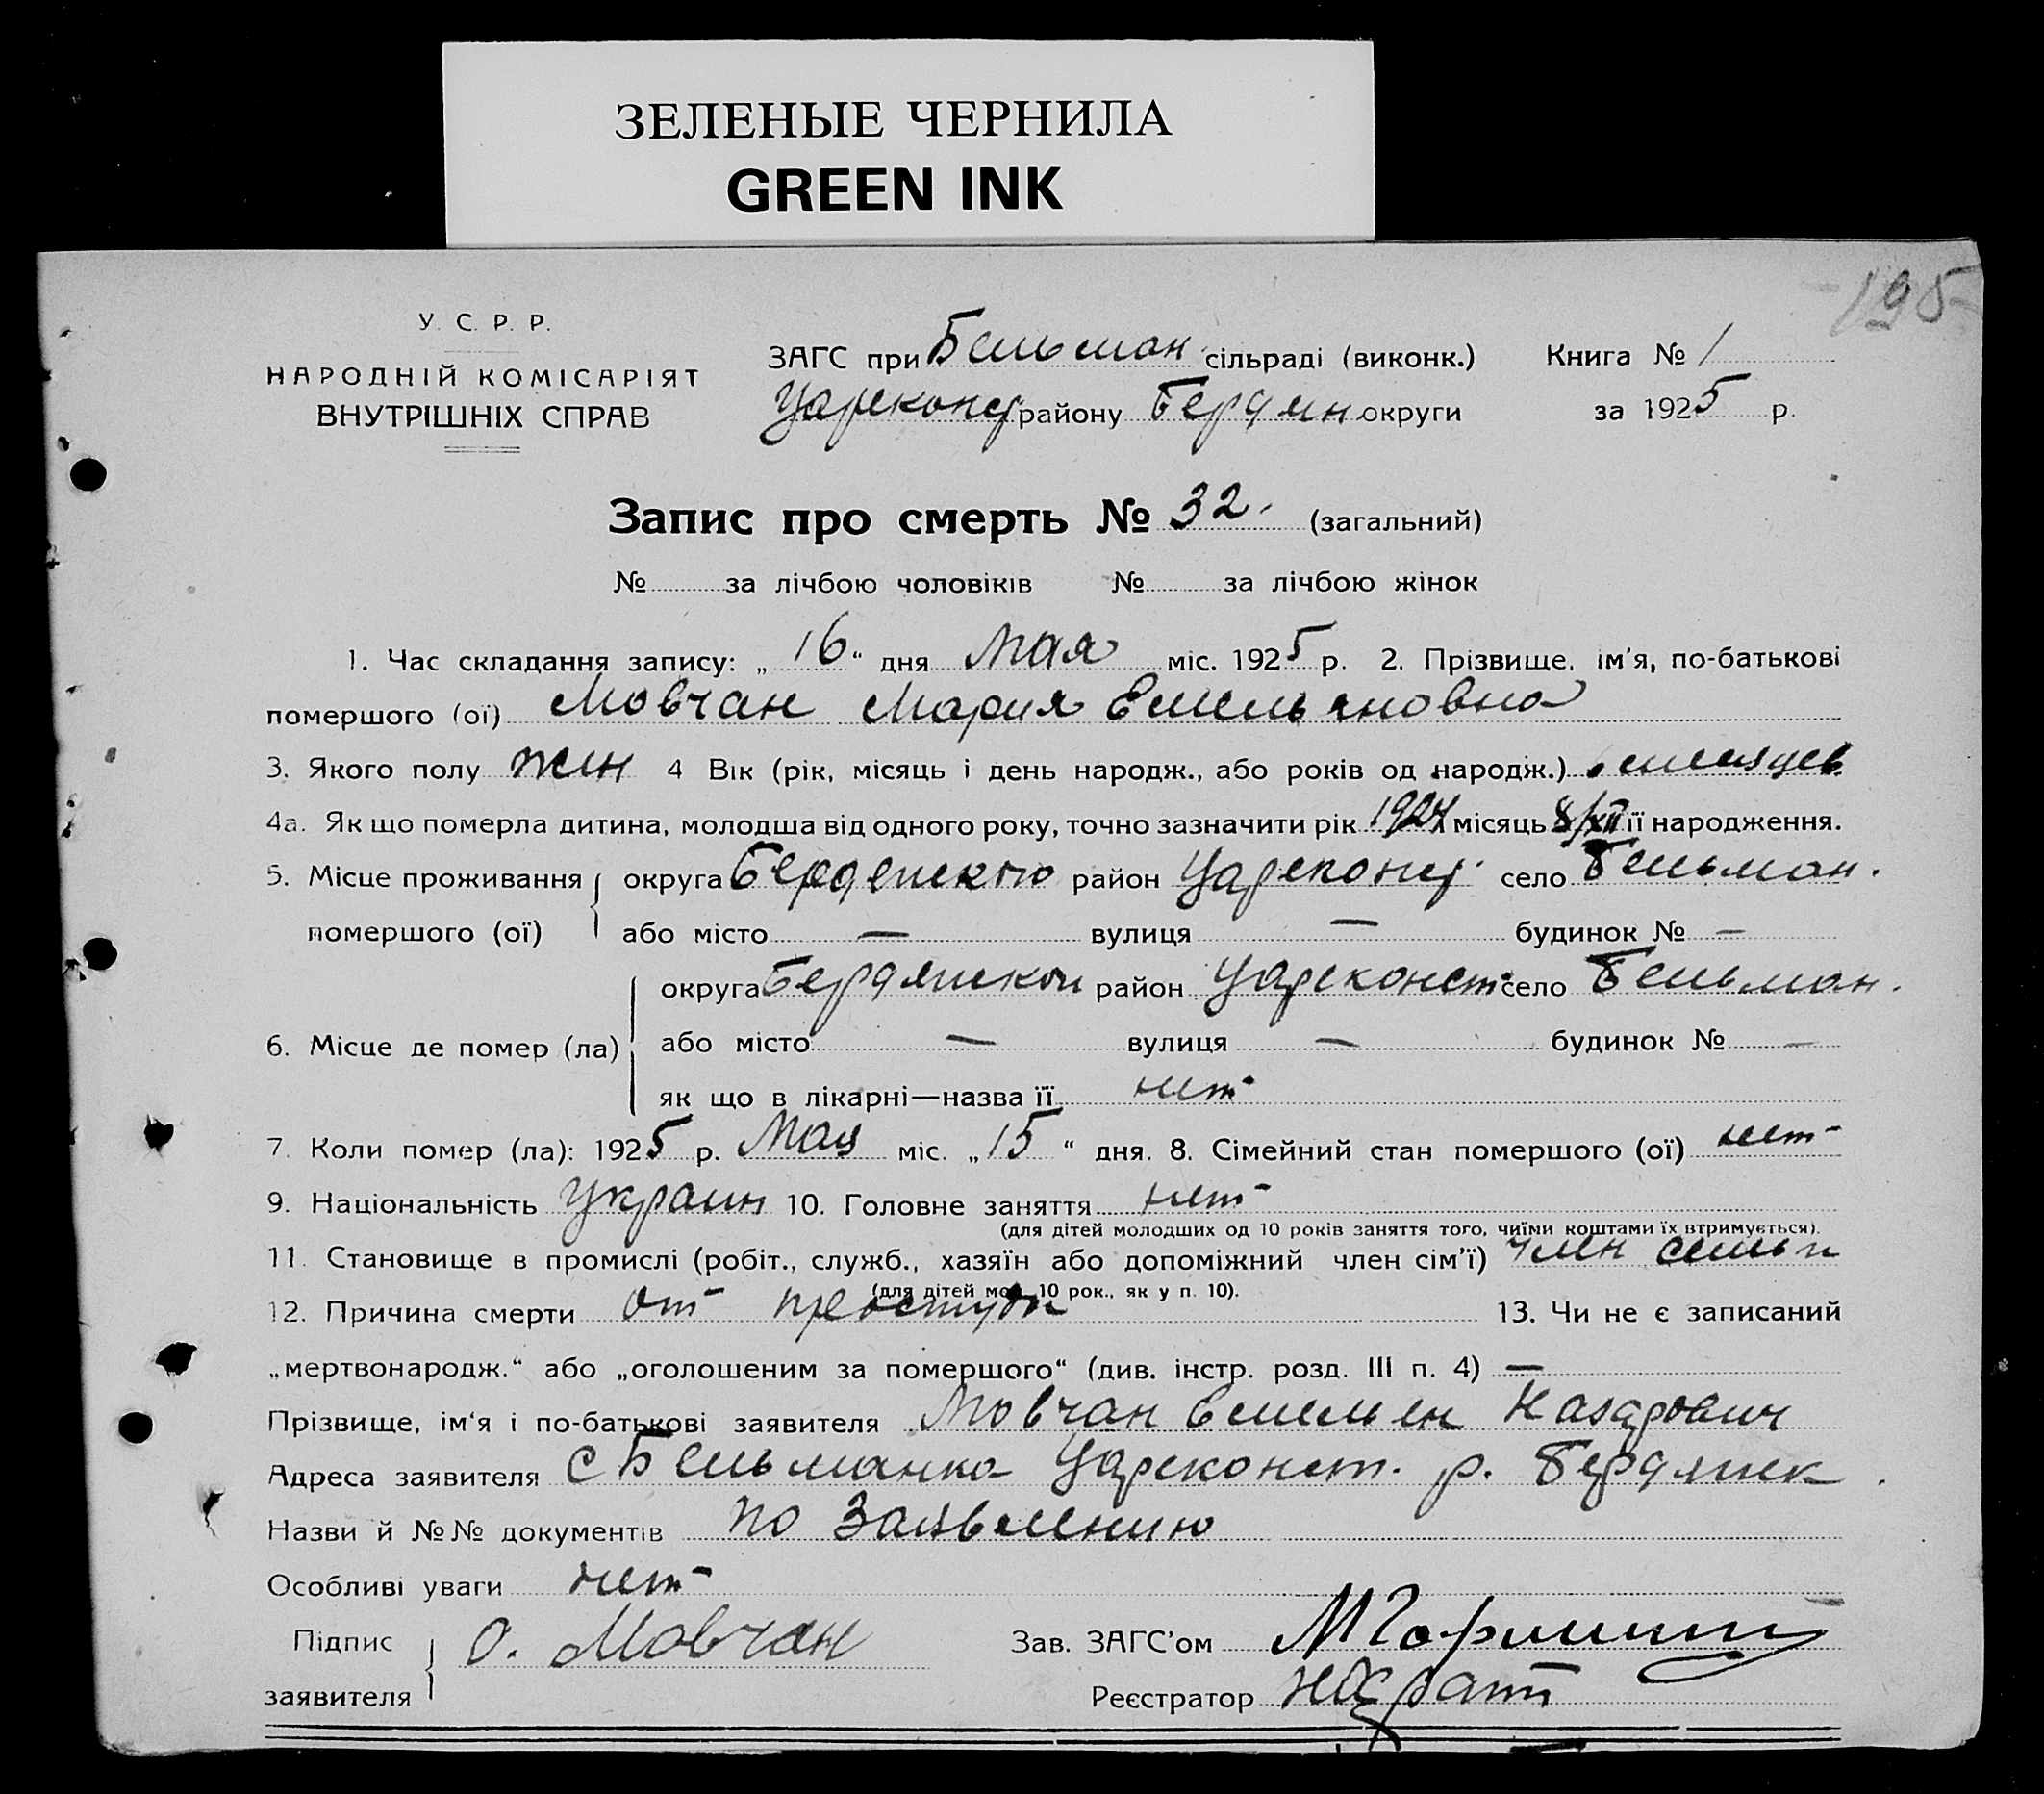 ЗЕЛЕНЫЕ ЧЕРНИЛА
GREEN INK
195
У. С. Р. Р.
НАРОДНІЙ КОМІСАРІЯТ
ВНУТРІШНІХ СПРАВ
ЗАГС при Бельман сільраді (виконк.) Книга № 1
Цареконст району Бердян округи за 1925 р.
Запис про смерть № 32. (загальний)
№ за лічбою чоловіків № за лічбою жінок
1. Час складання запису: „ 16 “ дня Мая міс. 1925 р. 2. Прізвище, ім'я, по-батькові
помершого (ої) Мовчан Мария Емельяновна
3. Якого полу жен 4 Вік (рік, місяць і день народж., або років од народж.) месяцев
4а. Як що померла дитина, молодша від одного року, точно зазначити рік 1924 місяць 8/XII її народження.
5. Місце проживання округа Бердянскою район Цареконст село Бельман.
помершого (ої) або місто — вулиця — будинок № —
округа Бердянской район Цареконст село Бельман.
6. Місце де помер (ла) або місто — вулиця — будинок № —
як що в лікарні—назва її нет
7. Коли помер (ла): 1925 р. Мая міс. „ 15 “ дня. 8. Сімейний стан помершого (ої) нет
9. Національність Украин 10. Головне заняття нет
(для дітей молодших од 10 років заняття того, чиїми коштами їх втримується).
11. Становище в промислі (робіт., служб., хазяїн або допоміжний член сім'ї) член семьи
(для дітей мол. 10 рок., як у п. 10).
12. Причина смерти от простуды 13. Чи не є записаний
„мертвонародж.“ або „оголошеним за помершого“ (див. інстр. розд. III п. 4) —
Прізвище, ім'я і по-батькові заявителя Мовчан Емельян Назарович
Адреса заявителя с Бельманка Цареконст. р. Бердянск.
Назви й №№ документів по Заявлению
Особливі уваги нет
Підпис заявителя О. Мовчан Зав. ЗАГС'ом
Реєстратор